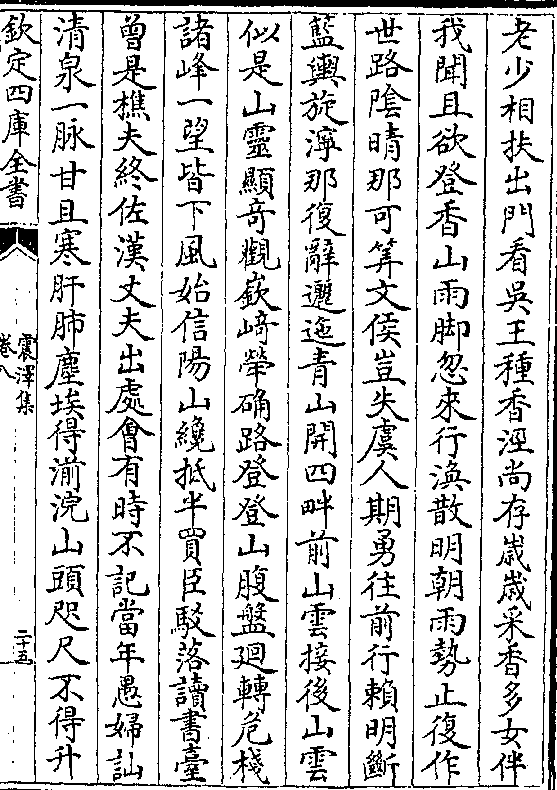 老少相扶出門看吳王種香涇尚存歳歳采香多女伴
我聞且欲登香山雨脚忽來行渙散明朝雨勢止復作
世路陰晴那可筭文侯豈失虞人期勇往前行賴明斷
藍輿旋濘那復辭邐迤青山開四畔前山雲接後山雲
似是山靈顯奇觀嶔﨑犖确路登登山腹盤廻轉危棧
諸峰一望皆下風始信陽山纔抵半買臣駁落讀書臺
曾是樵夫終佐漢丈夫出處會有時不記當年愚婦訕
清泉一脉甘且寒肝肺塵埃得湔浣山頭咫尺不得升
欽定四庫全書
震澤集
卷八
二十五